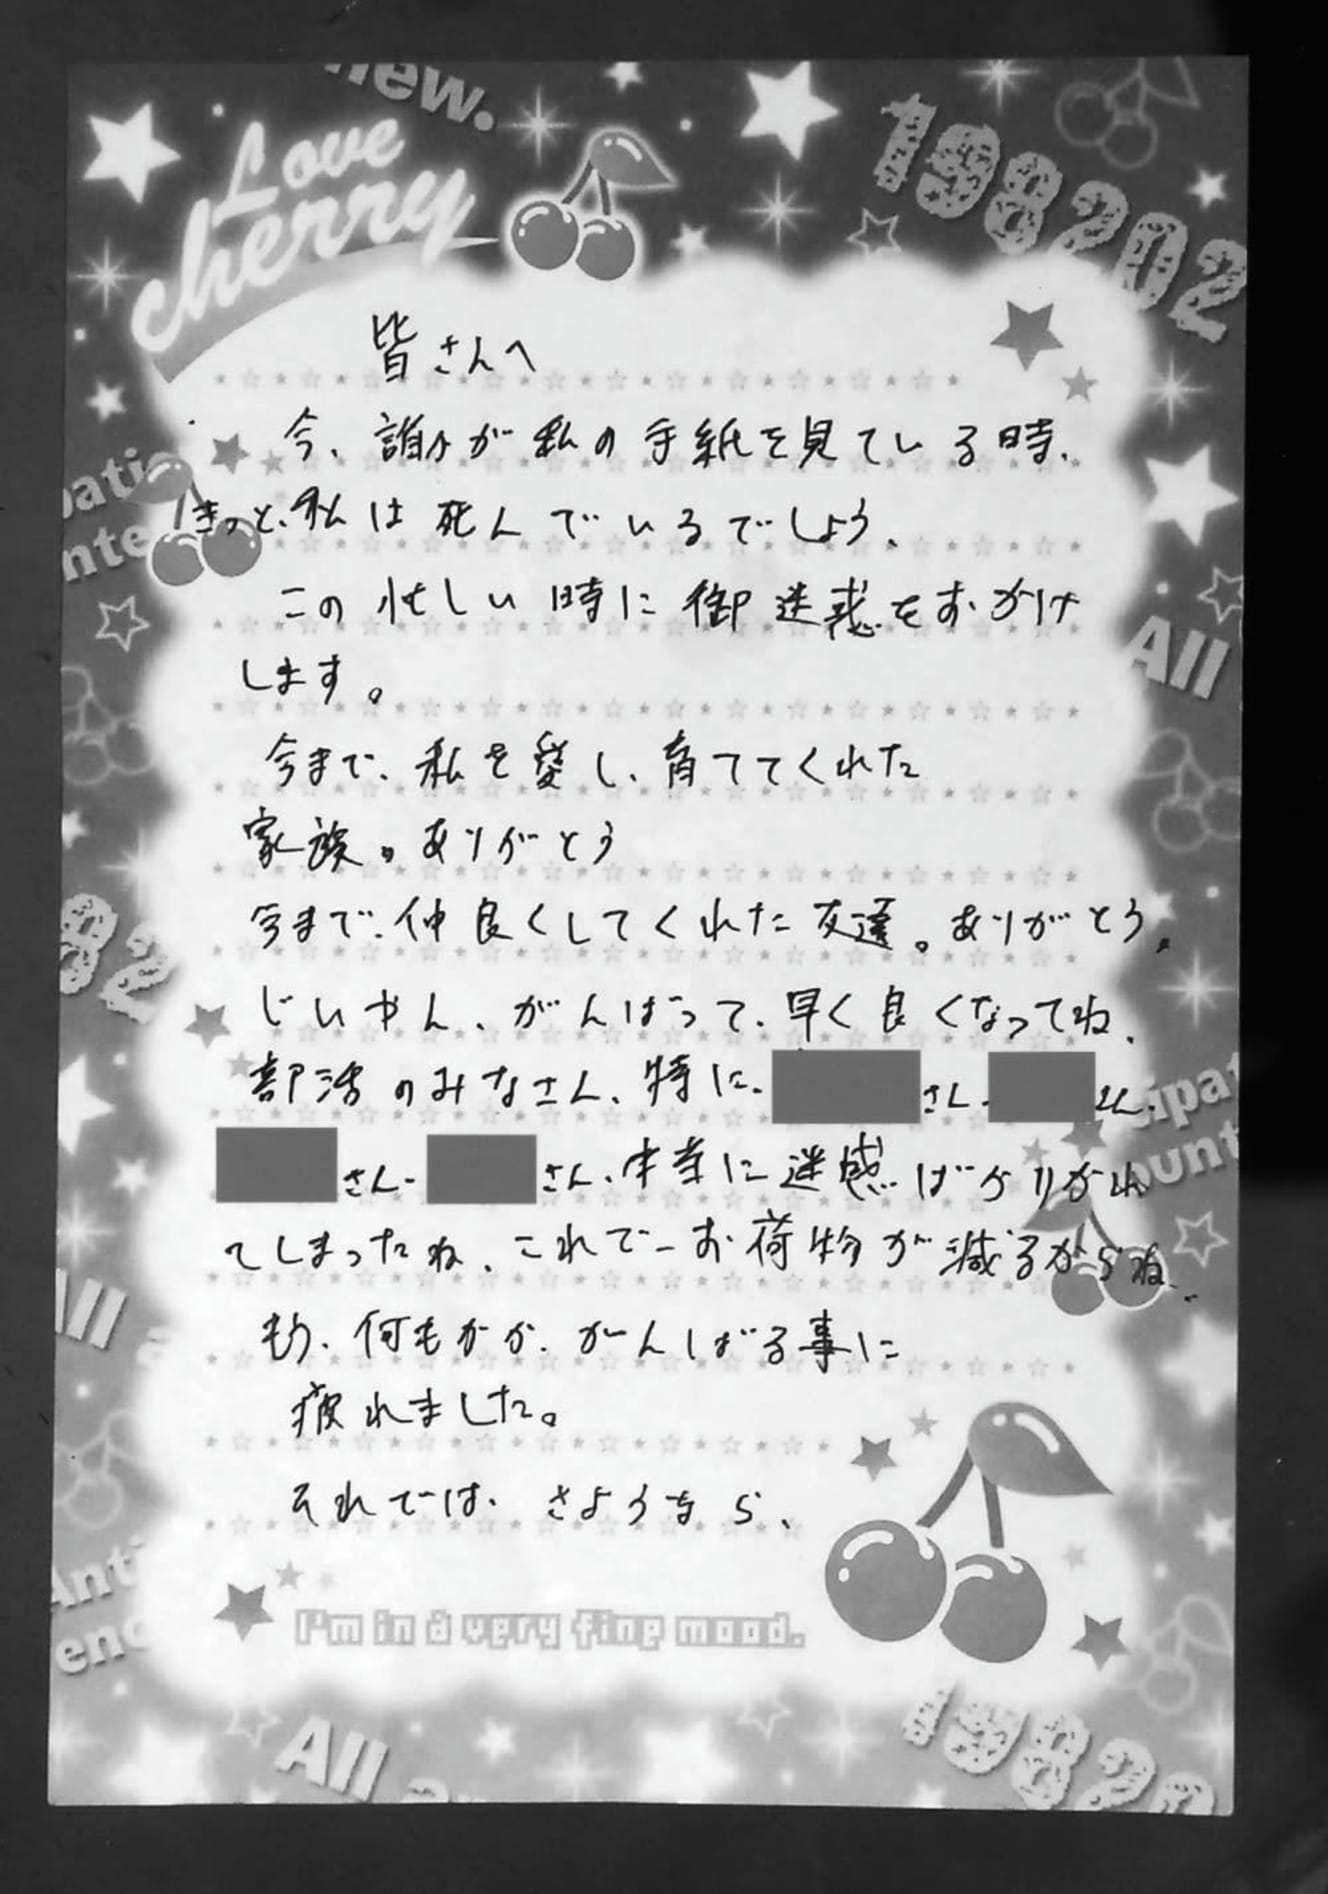 new.
Love
cherry
198202
皆さんへ
今、誰かが私の手紙を見ている時、
きっと、私は死んでいるでしょう、
この忙しい時に御迷惑をおかけ
します。
今まで、私を愛し、育ててくれた
家族。ありがとう
今まで、仲良くしてくれた友達。ありがとう、
じいやん、がんばって、早く良くなってね、
部活のみなさん、特に、
さん、
さん、
さん、
さん、本当に迷惑ばかりかけ
てしまったね、これで一お荷物が減るからね、
もう、何もかが、がんばる事に
疲れました。
それでは、さようなら、
I'm in a very fine mood.
All
All
All
82
19820